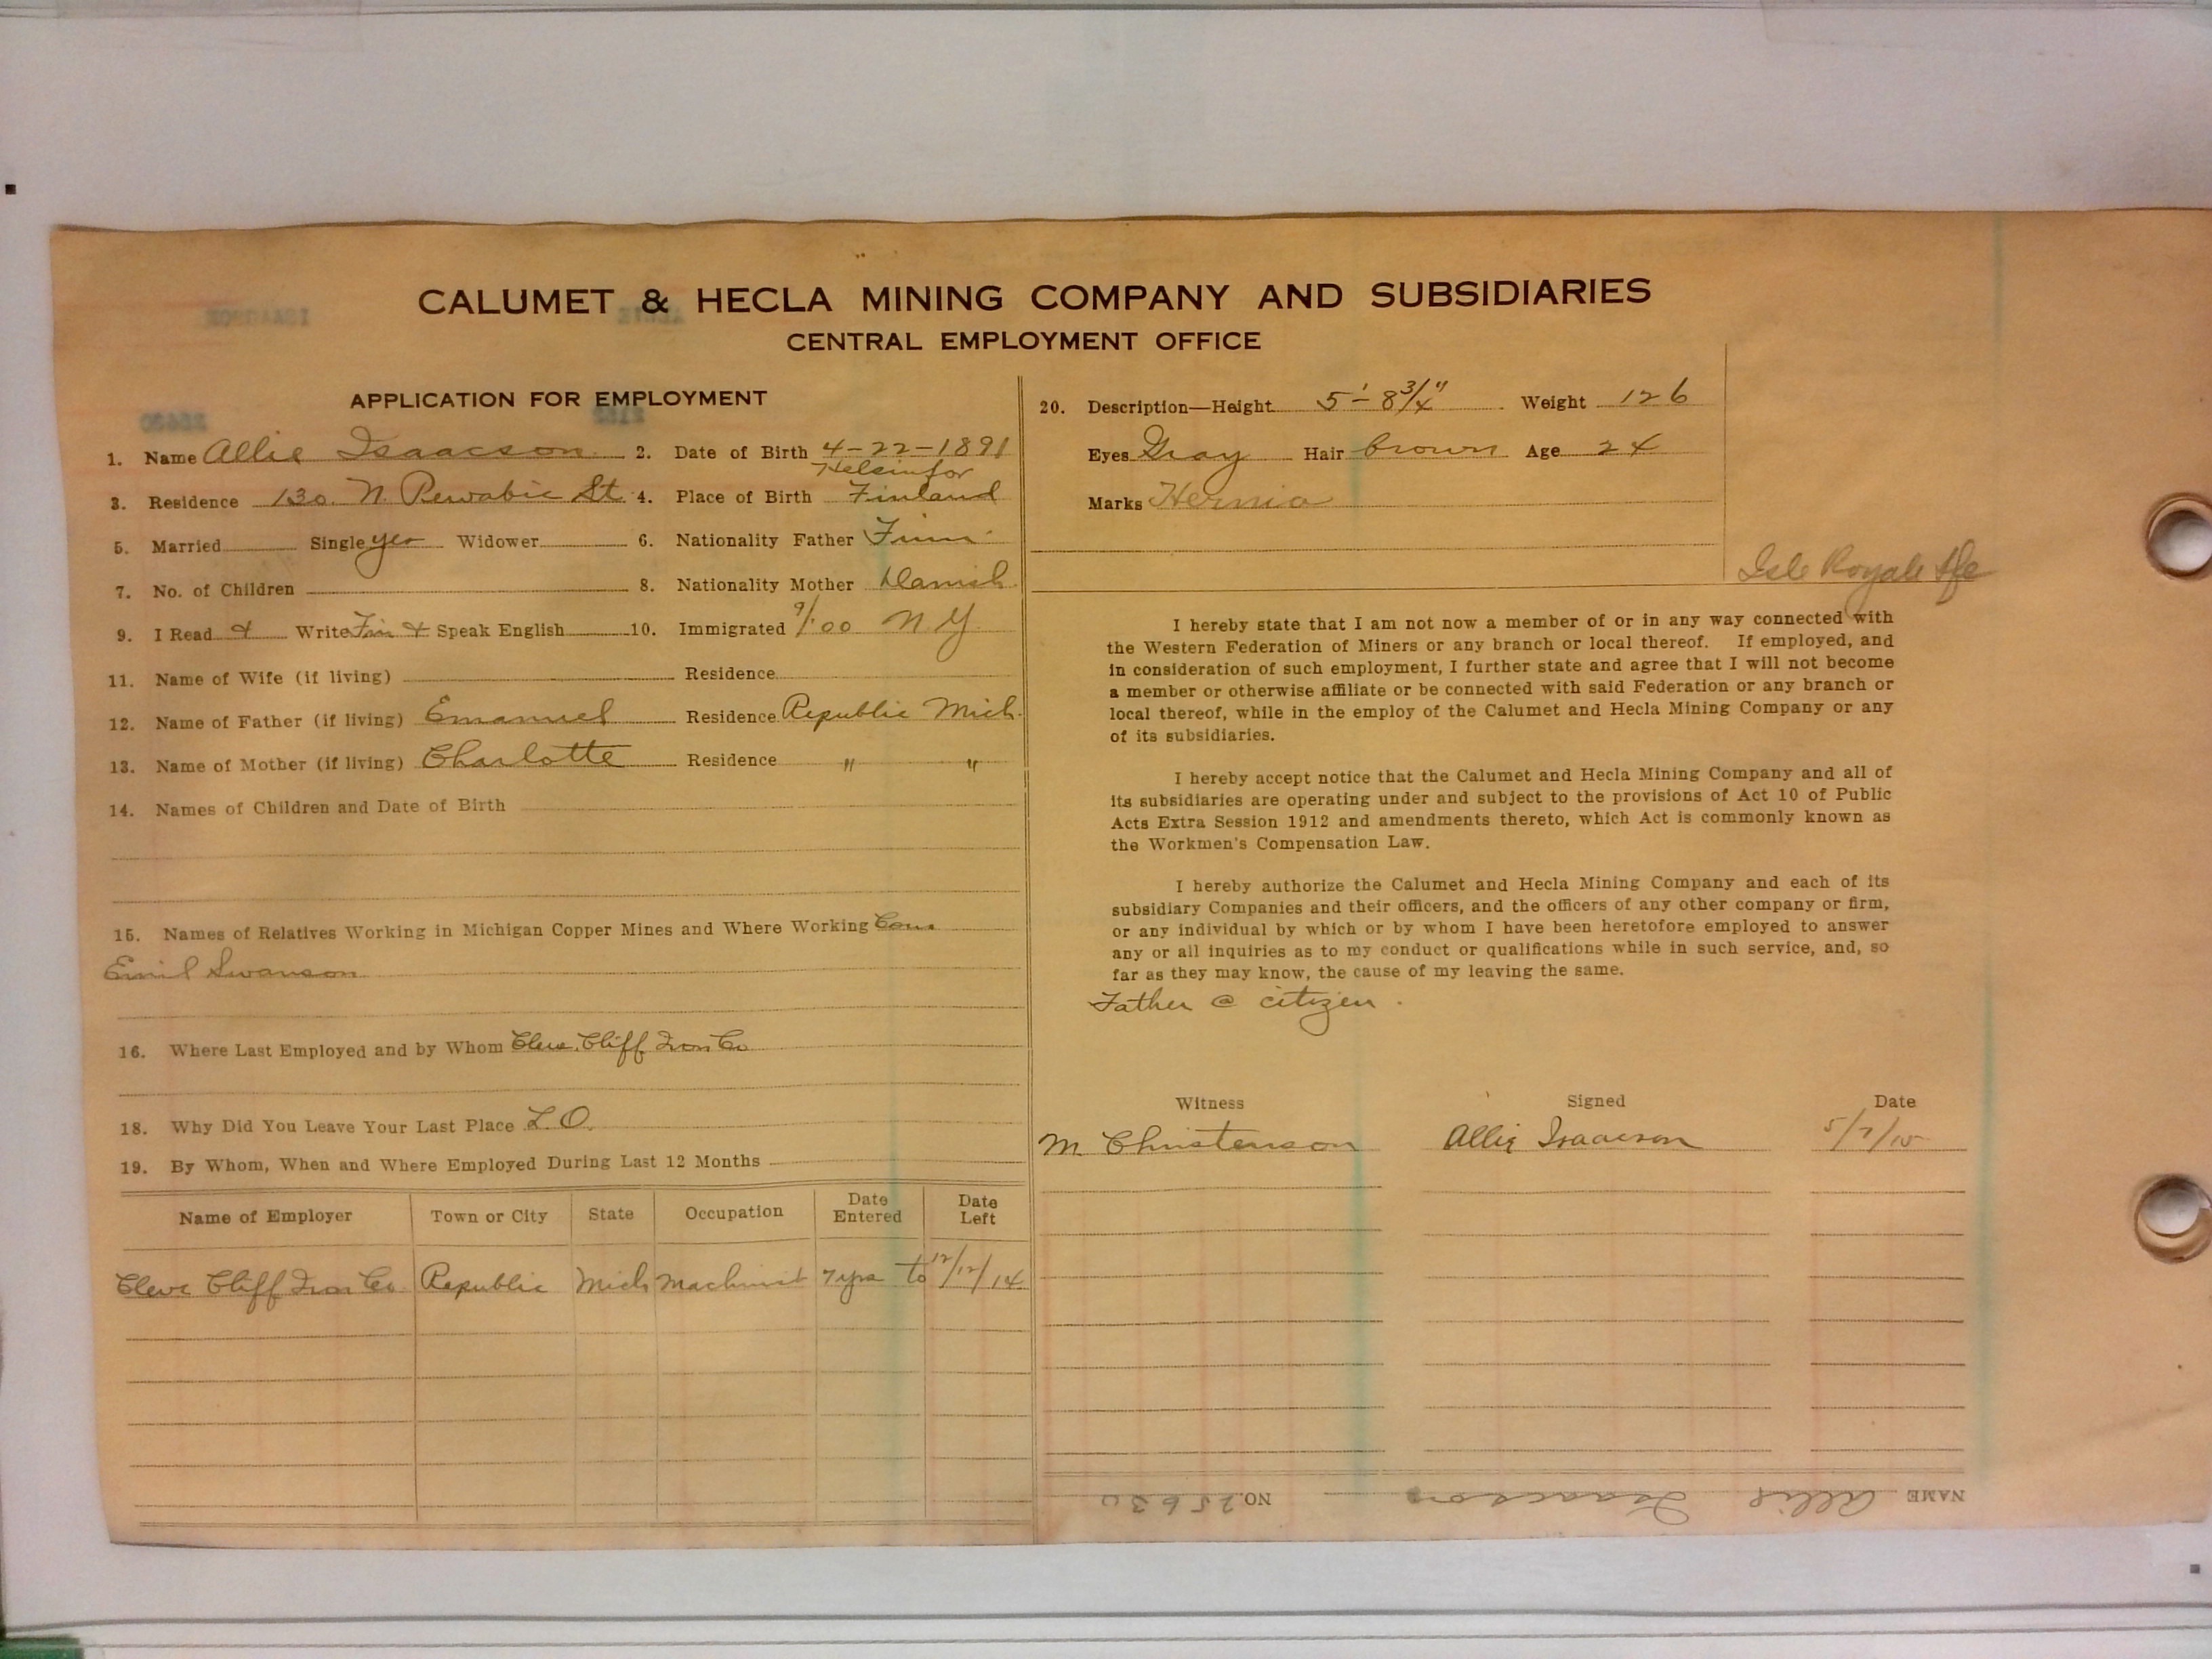 CALUMET & HECLA MINING COMPANY AND SUBSIDIARIES
CENTRAL EMPLOYMENT OFFICE
APPLICATION FOR EMPLOYMENT
1. Name Allie Isaacson 2. Date of Birth 4-22-1891
Helsinfor
3. Residence 130 N. Pewabic St. 4. Place of Birth Finland
5. Married Single yes Widower 6. Nationality Father Finn
7. No. of Children 8. Nationality Mother Danish
9. I Read & Write Fin & Speak English 10. Immigrated 9/00 N Y
11. Name of Wife (if living) Residence
12. Name of Father (if living) Emanuel Residence Republic Mich.
13. Name of Mother (if living) Charlotte Residence " "
14. Names of Children and Date of Birth
15. Names of Relatives Working in Michigan Copper Mines and Where Working Cous
Emil Swanson
16. Where Last Employed and by Whom Cleve. Cliff Iron Co
18. Why Did You Leave Your Last Place L.O.
19. By Whom, When and Where Employed During Last 12 Months
Name of Employer Town or City State Occupation Date Entered Date Left
Cleve Cliff Iron Co. Republic Mich Machinist 7 yrs to 12/12/14
20. Description—Height 5'-8 3/4" Weight 126
Eyes Gray Hair brown Age 24
Marks Hernia
Isle Royale
I hereby state that I am not now a member of or in any way connected with
the Western Federation of Miners or any branch or local thereof. If employed, and
in consideration of such employment, I further state and agree that I will not become
a member or otherwise affiliate or be connected with said Federation or any branch or
local thereof, while in the employ of the Calumet and Hecla Mining Company or any
of its subsidiaries.
I hereby accept notice that the Calumet and Hecla Mining Company and all of
its subsidiaries are operating under and subject to the provisions of Act 10 of Public
Acts Extra Session 1912 and amendments thereto, which Act is commonly known as
the Workmen's Compensation Law.
I hereby authorize the Calumet and Hecla Mining Company and each of its
subsidiary Companies and their officers, and the officers of any other company or firm,
or any individual by which or by whom I have been heretofore employed to answer
any or all inquiries as to my conduct or qualifications while in such service, and, so
far as they may know, the cause of my leaving the same.
Father @ citizen.
Witness Signed Date
M. Christenson Allie Isaacson 5/7/15
NAME Allie Isaacson NO. 25630